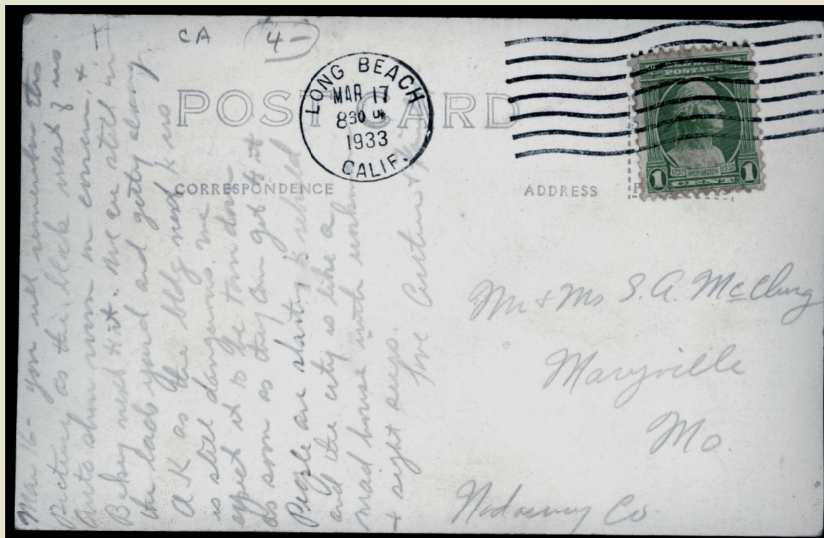 CA 4-
LONG BEACH
MAR 17
8 30 AM
1933
CALIF.
POST CARD
POSTAGE
1 CENT 1
CORRESPONDENCE
ADDRESS
Mar 16 - you will remember this
picture as the block west of us.
Auto show room on corner, &
Bekey next to it. We are still in
the back yard and getting along
O.K. as the bldg next to us
is still dangerous we
expect it to be torn down
as soon as they can get at it
People are starting to rebuild
and the city is like a
mad house with
& sight seers.
Love
Mr & Mrs S.A. McClurg
Maryville
Mo.
Nodaway Co